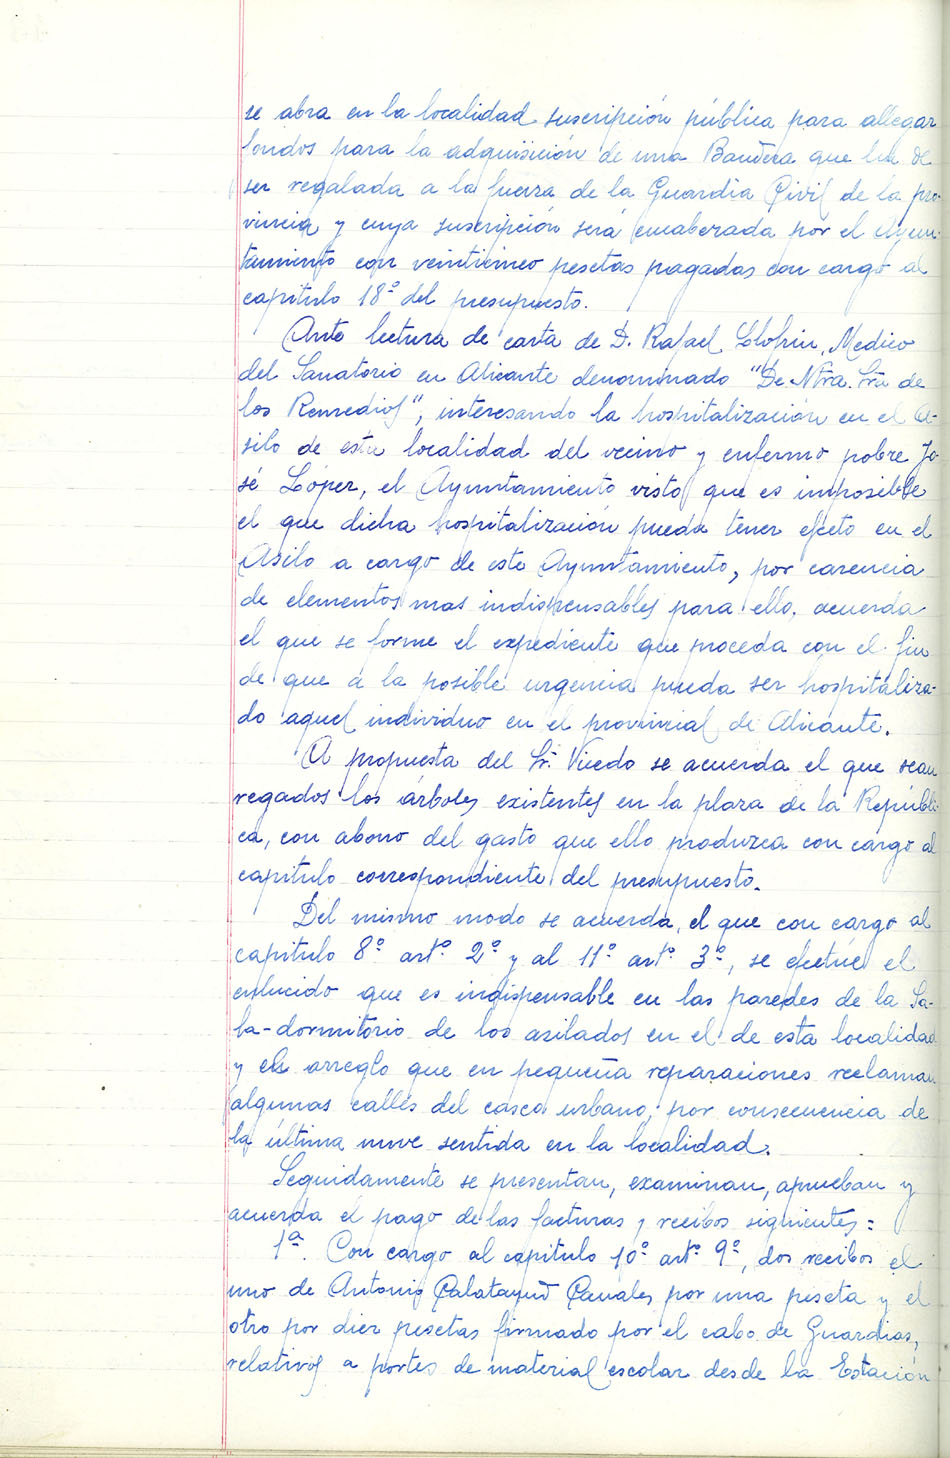 se abra en la localidad suscripción pública para allegar
fondos para la adquisición de una Bandera que ha de
ser regalada a la fuerza de la Guardia Civil de la pro-
vincia y cuya suscripción será encabezada por el Ayun-
tamiento con veinticinco pesetas pagadas con cargo al
capítulo 18º del presupuesto.
Ante lectura de carta de D. Rafael Medico
del Sanatorio en Alicante denominado "De Ntra. Sra de
los Remedios", interesando la hospitalización en el A-
silo de esta localidad del vecino y enfermo pobre Jo-
sé López, el Ayuntamiento visto que es imposible
el que dicha hospitalización pueda tener efecto en el
Asilo a cargo de este Ayuntamiento, por carencia
de elementos mas indispensables para ello, acuerda
el que se forme el expediente que proceda con el fin
de que a la posible urgencia pueda ser hospitaliza-
do aquel individuo en el provincial de Alicante.
A propuesta del Sr. Vicedo se acuerda el que sean
regados los árboles existentes en la plaza de la Repúbli-
ca, con abono del gasto que ello produzca con cargo al
capítulo correspondiente del presupuesto.
Del mismo modo se acuerda, el que con cargo al
capítulo 8º artº 2º y al 11º artº 3º, se efectúe el
enlucido que es indispensable en las paredes de la Sa-
la-dormitorio de los asilados en el de esta localidad
y el arreglo que en pequeña reparaciones reclaman
algunas calles del casco urbano, por consecuencia de
la última nieve sentida en la localidad.
Seguidamente se presentan, examinan, aprueban y
acuerda el pago de las facturas y recibos siguientes:
1ª. Con cargo al capítulo 10º artº 9º, dos recibos el
uno de Antonio Calatayud Canales por una peseta y el
otro por diez pesetas firmado por el cabo de Guardias,
relativos a portes de material escolar desde la Estación